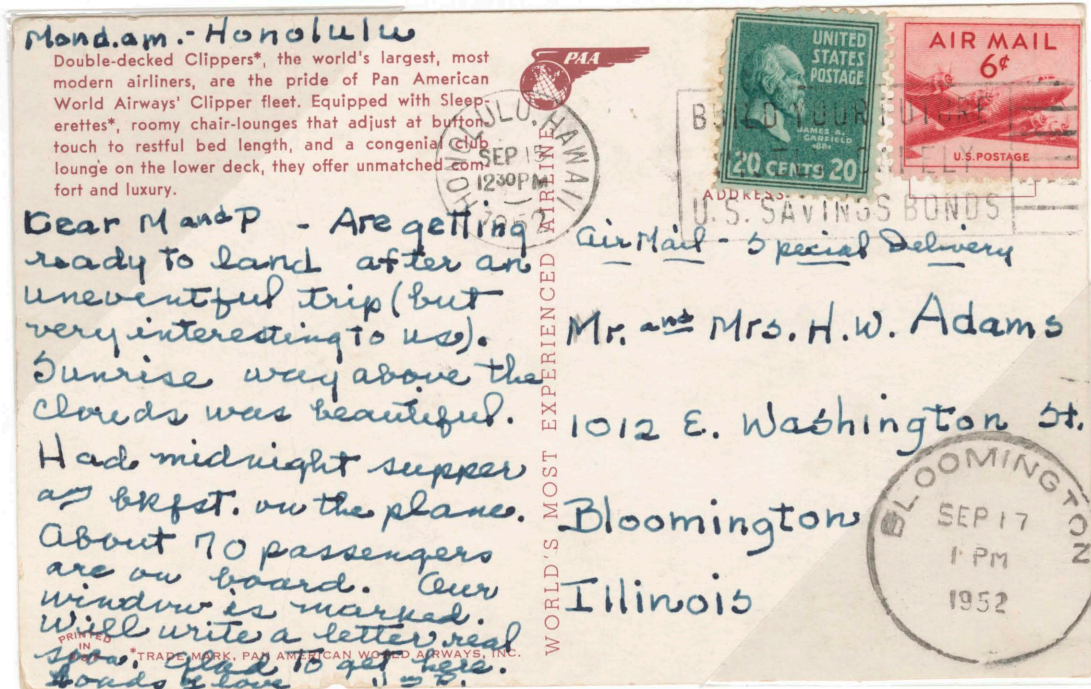 Mond. am. - Honolulu
Double-decked Clippers*, the world's largest, most
modern airliners, are the pride of Pan American
World Airways' Clipper fleet. Equipped with Sleep-
erettes*, roomy chair-lounges that adjust at button
touch to restful bed length, and a congenial club
lounge on the lower deck, they offer unmatched com-
fort and luxury.
Dear M and P - Are getting
ready to land after an
uneventful trip (but
very interesting to us).
Sunrise way above the
clouds was beautiful.
Had midnight supper
and bkfst. on the plane.
About 70 passengers
are on board. Our
window is marked.
Will write a letter real
soon. Glad to get here.
Loads of love
PRINTED
IN
*TRADE MARK, PAN AMERICAN WORLD AIRWAYS, INC.
PAA
HONOLULU, HAWAII
SEP 15
12 30 PM
1952
WORLD'S MOST EXPERIENCED AIRLINE
UNITED
STATES
POSTAGE
JAMES A.
GARFIELD
20 CENTS 20
AIR MAIL
6¢
U.S. POSTAGE
BUILD YOUR FUTURE
U.S. SAVINGS BONDS
ADDRESS
Air Mail - Special Delivery
Mr. and Mrs. H.W. Adams
1012 E. Washington St.
Bloomington
Illinois
BLOOMINGTON
SEP 17
1 PM
1952